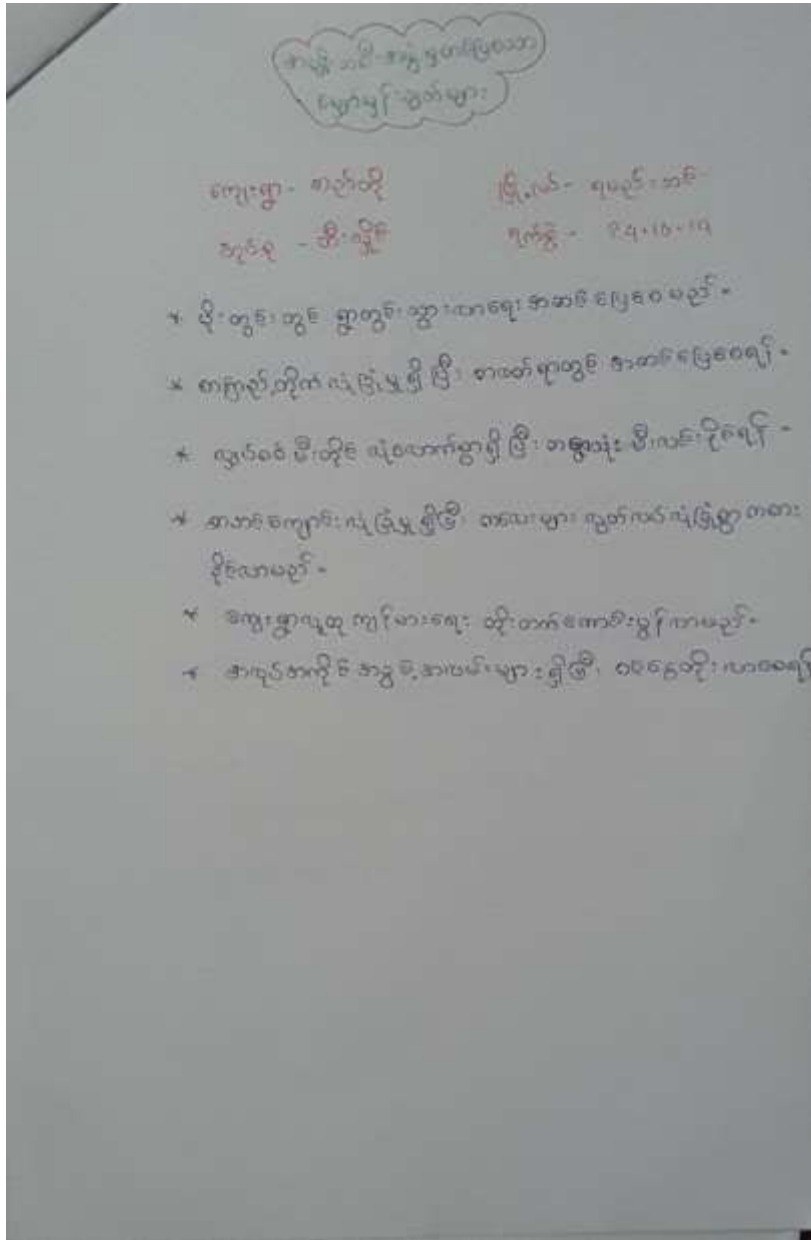 အမျိုးသမီးအဖွဲ့မှတင်ပြသော
မျှော်မှန်းချက်များ
ကျေးရွာ - စည်တို မြို့နယ် - ရမည်းသင်း
အုပ်စု - ညီးလှိုင် ရက်စွဲ - 24.10.19
* မိုးတွင်းတွင် ရွာတွင်းသွားလာရေးအဆင်ပြေစေမည်။
* စာကြည့်တိုက်လုံခြုံမှုရှိပြီး စာဖတ်ရာတွင် အဆင်ပြေစေရန်။
* လျှပ်စစ်မီးတိုင် လုံလောက်စွာရှိပြီး တရွာလုံး မီးလင်းနိုင်ရန်။
* စာသင်ကျောင်းလုံခြုံမှုရှိပြီး ကလေးများ လွတ်လပ်လုံခြုံစွာ ကစား
နိုင်လာမည်။
* ကျေးရွာလူထု ကျန်းမာရေး တိုးတက်ကောင်းမွန်လာမည်။
* အလုပ်အကိုင် အခွင့်အလမ်းများရှိပြီး ဝင်ငွေတိုးလာစေရန်